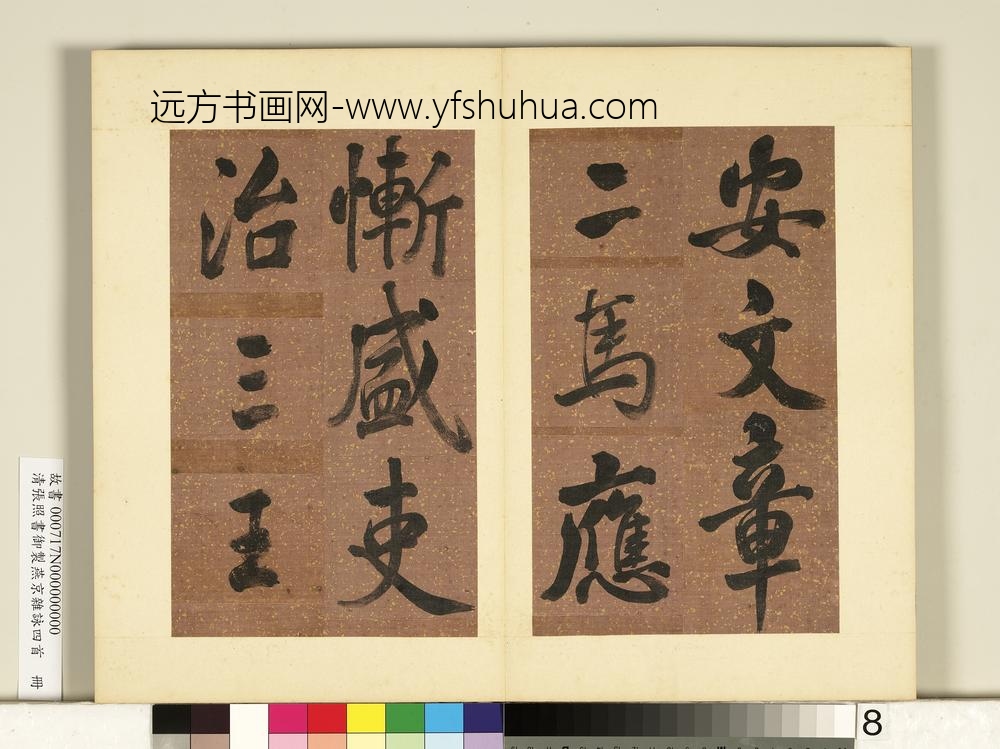 远方书画网-www.yfshuhua.com
安文章
二馬應
慚盛吏
治三王
故書 000717N000000000
清張照書御製燕京雜詠四首 冊
8